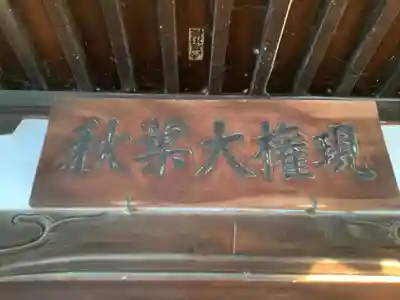 秋葉大権現